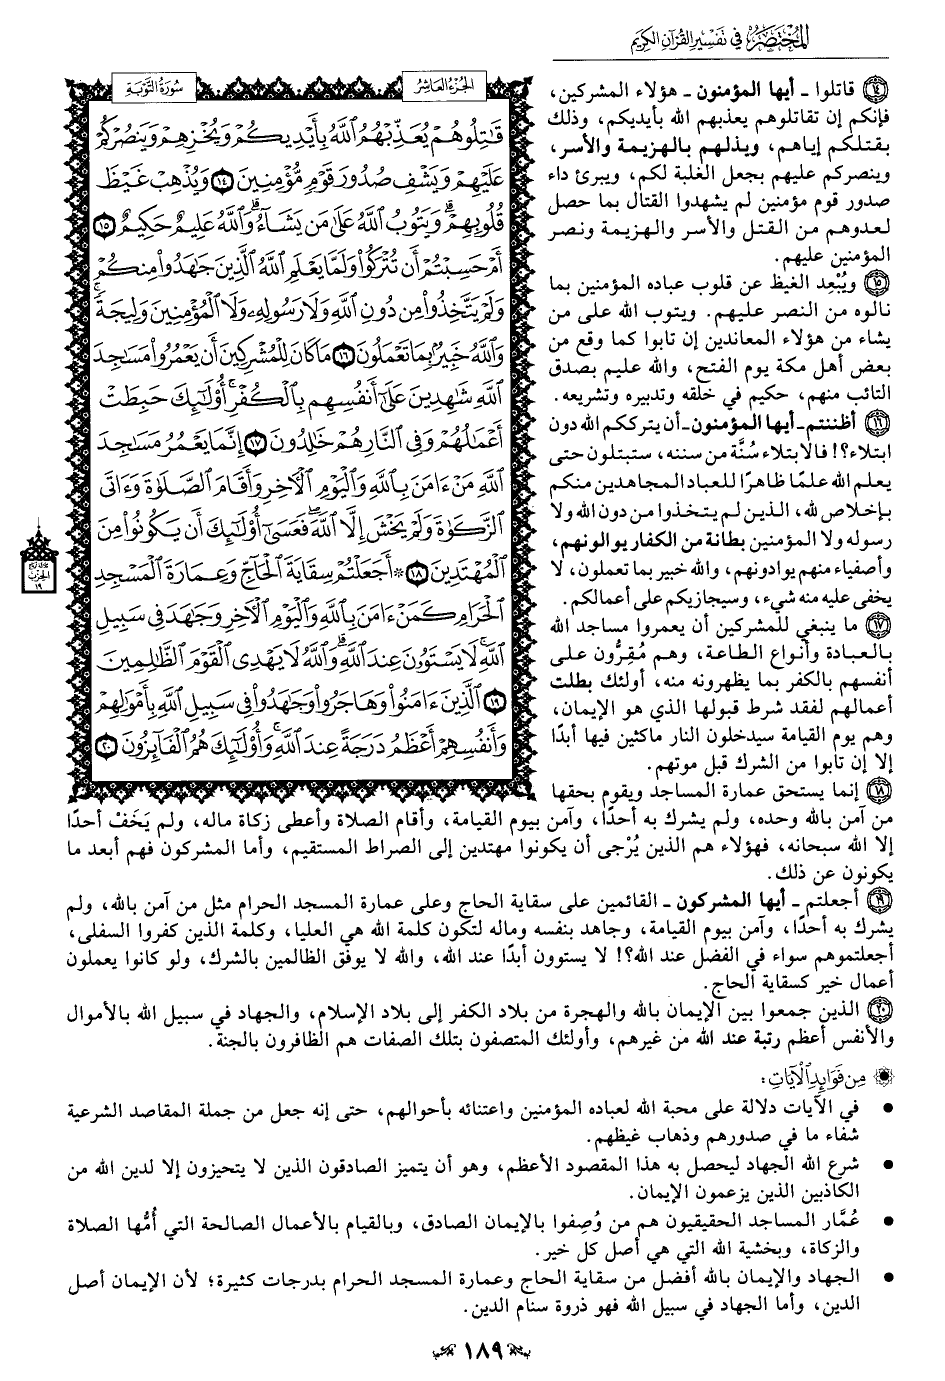 المختصر في تفسير القرآن الكريم
١٤ قاتلوا - أيها المؤمنون - هؤلاء المشركين،
فإنكم إن تقاتلوهم يعذبهم الله بأيديكم، وذلك
بقتلكم إياهم، ويذلهم بالهزيمة والأسر،
وينصركم عليهم بجعل الغلبة لكم، ويبرئ داء
صدور قوم مؤمنين لم يشهدوا القتال بما حصل
لعدوهم من القتل والأسر والهزيمة ونصر
المؤمنين عليهم.
١٥ ويُبْعِد الغيظ عن قلوب عباده المؤمنين بما
نالوه من النصر عليهم. ويتوب الله على من
يشاء من هؤلاء المعاندين إن تابوا كما وقع من
بعض أهل مكة يوم الفتح، والله عليم بصدق
التائب منهم، حكيم في خلقه وتدبيره وتشريعه.
١٦ أظننتم - أيها المؤمنون - أن يترككم الله دون
ابتلاء؟! فالابتلاء سُنَّة من سننه، ستبتلون حتى
يعلم الله علمًا ظاهرًا للعباد المجاهدين منكم
بإخلاص لله، الذين لم يتخذوا من دون الله ولا
رسوله ولا المؤمنين بطانة من الكفار يوالونهم،
وأصفياء منهم يوادونهم، والله خبير بما تعملون، لا
يخفى عليه منه شيء، وسيجازيكم على أعمالكم.
١٧ ما ينبغي للمشركين أن يعمروا مساجد الله
بالعبادة وأنواع الطاعة، وهم مُقِرُّون على
أنفسهم بالكفر بما يظهرونه منه، أولئك بطلت
أعمالهم لفقد شرط قبولها الذي هو الإيمان،
وهم يوم القيامة سيدخلون النار ماكثين فيها أبدًا
إلا إن تابوا من الشرك قبل موتهم.
١٨ إنما يستحق عمارة المساجد ويقوم بحقها
من آمن بالله وحده، ولم يشرك به أحدًا، وآمن بيوم القيامة، وأقام الصلاة وأعطى زكاة ماله، ولم يَخَفْ أحدًا
إلا الله سبحانه، فهؤلاء هم الذين يُرْجى أن يكونوا مهتدين إلى الصراط المستقيم، وأما المشركون فهم أبعد ما
يكونون عن ذلك.
١٩ أجعلتم - أيها المشركون - القائمين على سقاية الحاج وعلى عمارة المسجد الحرام مثل من آمن بالله، ولم
يشرك به أحدًا، وآمن بيوم القيامة، وجاهد بنفسه وماله لتكون كلمة الله هي العليا، وكلمة الذين كفروا السفلى،
أجعلتموهم سواء في الفضل عند الله؟! لا يستوون أبدًا عند الله، والله لا يوفق الظالمين بالشرك، ولو كانوا يعملون
أعمال خير كسقاية الحاج.
٢٠ الذين جمعوا بين الإيمان بالله والهجرة من بلاد الكفر إلى بلاد الإسلام، والجهاد في سبيل الله بالأموال
والأنفس أعظم رتبة عند الله من غيرهم، وأولئك المتصفون بتلك الصفات هم الظافرون بالجنة.
الجزء العاشر
سورة التوبة
قَٰتِلُوهُمْ يُعَذِّبْهُمُ ٱللَّهُ بِأَيْدِيكُمْ وَيُخْزِهِمْ وَيَنصُرْكُمْ
عَلَيْهِمْ وَيَشْفِ صُدُورَ قَوْمٍ مُّؤْمِنِينَ ١٤ وَيُذْهِبْ غَيْظَ
قُلُوبِهِمْ ۗ وَيَتُوبُ ٱللَّهُ عَلَىٰ مَن يَشَآءُ ۗ وَٱللَّهُ عَلِيمٌ حَكِيمٌ ١٥
أَمْ حَسِبْتُمْ أَن تُتْرَكُوا۟ وَلَمَّا يَعْلَمِ ٱللَّهُ ٱلَّذِينَ جَٰهَدُوا۟ مِنكُمْ
وَلَمْ يَتَّخِذُوا۟ مِن دُونِ ٱللَّهِ وَلَا رَسُولِهِۦ وَلَا ٱلْمُؤْمِنِينَ وَلِيجَةً ۚ
وَٱللَّهُ خَبِيرٌۢ بِمَا تَعْمَلُونَ ١٦ مَا كَانَ لِلْمُشْرِكِينَ أَن يَعْمُرُوا۟ مَسَٰجِدَ
ٱللَّهِ شَٰهِدِينَ عَلَىٰٓ أَنفُسِهِم بِٱلْكُفْرِ ۚ أُو۟لَٰٓئِكَ حَبِطَتْ
أَعْمَٰلُهُمْ وَفِى ٱلنَّارِ هُمْ خَٰلِدُونَ ١٧ إِنَّمَا يَعْمُرُ مَسَٰجِدَ
ٱللَّهِ مَنْ ءَامَنَ بِٱللَّهِ وَٱلْيَوْمِ ٱلْـَٔاخِرِ وَأَقَامَ ٱلصَّلَوٰةَ وَءَاتَى
ٱلزَّكَوٰةَ وَلَمْ يَخْشَ إِلَّا ٱللَّهَ ۖ فَعَسَىٰٓ أُو۟لَٰٓئِكَ أَن يَكُونُوا۟ مِنَ
ٱلْمُهْتَدِينَ ١٨ ۞ أَجَعَلْتُمْ سِقَايَةَ ٱلْحَآجِّ وَعِمَارَةَ ٱلْمَسْجِدِ
ٱلْحَرَامِ كَمَنْ ءَامَنَ بِٱللَّهِ وَٱلْيَوْمِ ٱلْـَٔاخِرِ وَجَٰهَدَ فِى سَبِيلِ
ٱللَّهِ ۚ لَا يَسْتَوُۥنَ عِندَ ٱللَّهِ ۗ وَٱللَّهُ لَا يَهْدِى ٱلْقَوْمَ ٱلظَّٰلِمِينَ
١٩ ٱلَّذِينَ ءَامَنُوا۟ وَهَاجَرُوا۟ وَجَٰهَدُوا۟ فِى سَبِيلِ ٱللَّهِ بِأَمْوَٰلِهِمْ
وَأَنفُسِهِمْ أَعْظَمُ دَرَجَةً عِندَ ٱللَّهِ ۚ وَأُو۟لَٰٓئِكَ هُمُ ٱلْفَآئِزُونَ ٢٠
الحزب
١٩
من فوائد الآيات:
• في الآيات دلالة على محبة الله لعباده المؤمنين واعتنائه بأحوالهم، حتى إنه جعل من جملة المقاصد الشرعية
شفاء ما في صدورهم وذهاب غيظهم.
• شرع الله الجهاد ليحصل به هذا المقصود الأعظم، وهو أن يتميز الصادقون الذين لا يتحيزون إلا لدين الله من
الكاذبين الذين يزعمون الإيمان.
• عُمَّار المساجد الحقيقيون هم من وُصِفوا بالإيمان الصادق، وبالقيام بالأعمال الصالحة التي أُمُّها الصلاة
والزكاة، وبخشية الله التي هي أصل كل خير.
• الجهاد والإيمان بالله أفضل من سقاية الحاج وعمارة المسجد الحرام بدرجات كثيرة؛ لأن الإيمان أصل
الدين، وأما الجهاد في سبيل الله فهو ذروة سنام الدين.
١٨٩